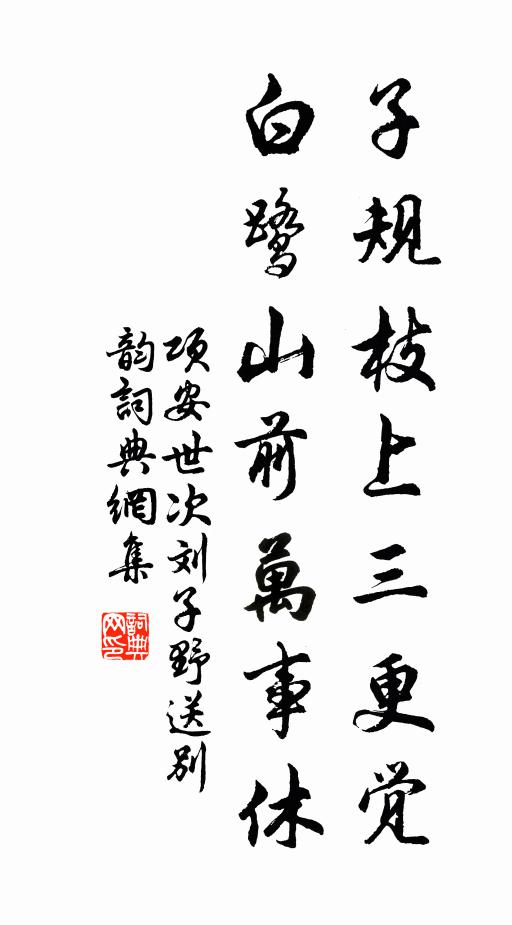 子规枝上三更觉
白鹭山前萬事休
项安世次刘子野送别
韵詞典網集
詞典网印